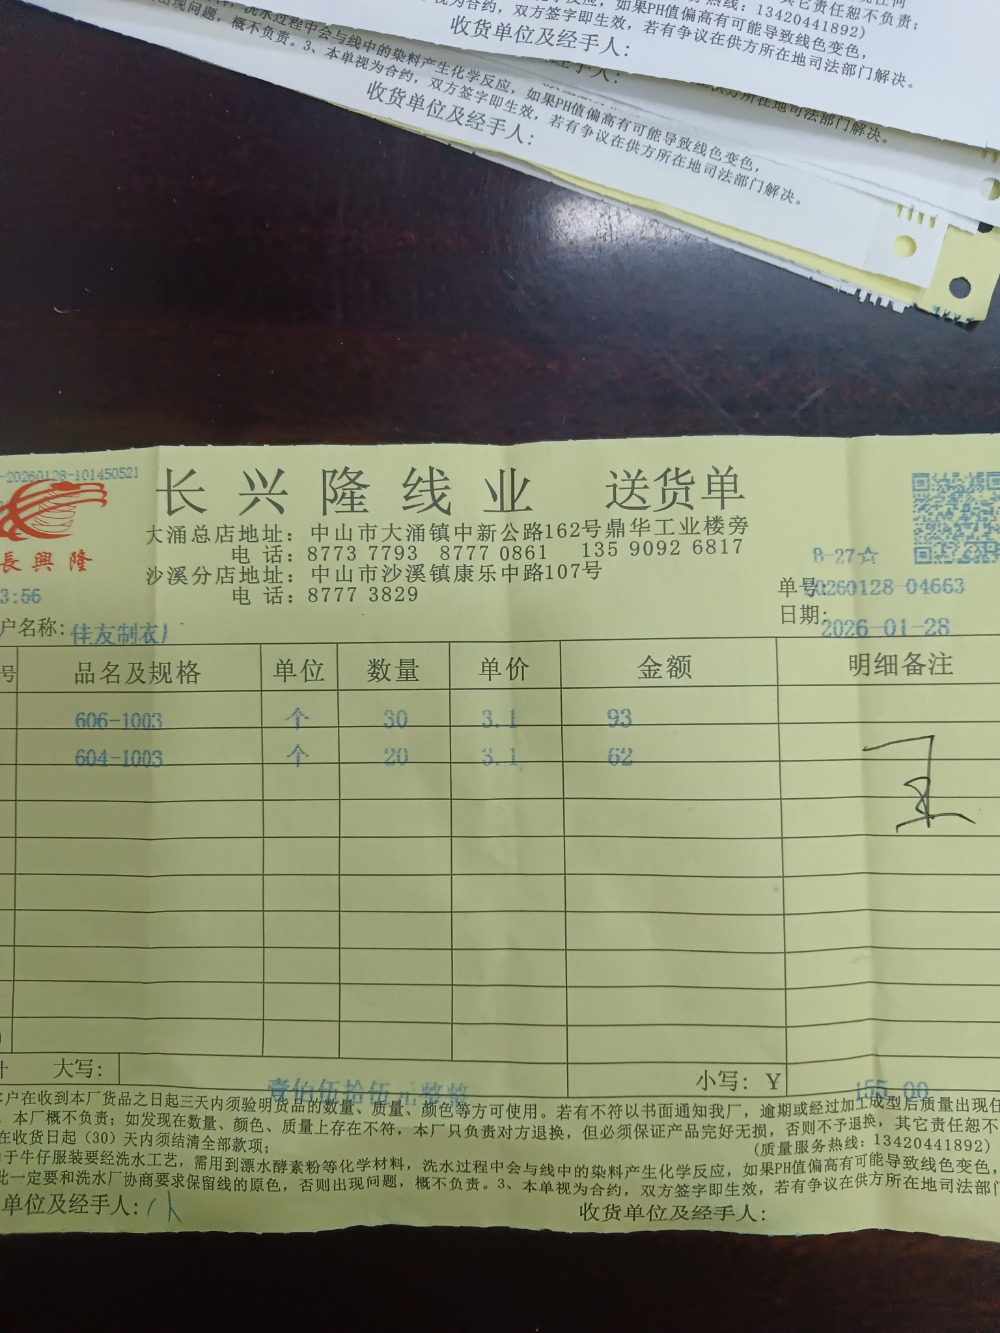 其它责任恕不负责；
热线：13420441892)
如果PH值偏高有可能导致线色变色，
视为合约，双方签字即生效，若有争议在供方所在地司法部门解决。
收货单位及经手人：
出现问题，概不负责。3、本单视为合约，双方签字即生效，若有争议在供方所在地司法部门解决。
洗水过程中会与线中的染料产生化学反应，如果PH值偏高有可能导致线色变色，
收货单位及经手人：
-20260128-101450521
长兴隆线业 送货单
長興隆
大涌总店地址：中山市大涌镇中新公路162号鼎华工业楼旁
电 话：8773 7793 8777 0861 135 9092 6817
沙溪分店地址：中山市沙溪镇康乐中路107号
电 话：8777 3829
B-27☆
3:56
单号:20260128-04663
日期:2026-01-28
户名称:佳友制衣厂
号 品名及规格 单位 数量 单价 金额 明细备注
606-1003 个 30 3.1 93
604-1003 个 20 3.1 62
计 大写： 壹佰伍拾伍元整 小写：￥ 155.00
客户在收到本厂货品之日起三天内须验明货品的数量、质量、颜色等方可使用。若有不符以书面通知我厂，逾期或经过加工成型后质量出现任
，本厂概不负责；如发现在数量、颜色、质量上存在不符，本厂只负责对方退换，但必须保证产品完好无损，否则不予退换，其它责任恕不
在收货日起（30）天内须结清全部款项；
(质量服务热线：13420441892)
于牛仔服装要经洗水工艺，需用到漂水酵素粉等化学材料，洗水过程中会与线中的染料产生化学反应，如果PH值偏高有可能导致线色变色，
此一定要和洗水厂协商要求保留线的原色，否则出现问题，概不负责。3、本单视为合约，双方签字即生效，若有争议在供方所在地司法部门
单位及经手人:
收货单位及经手人: